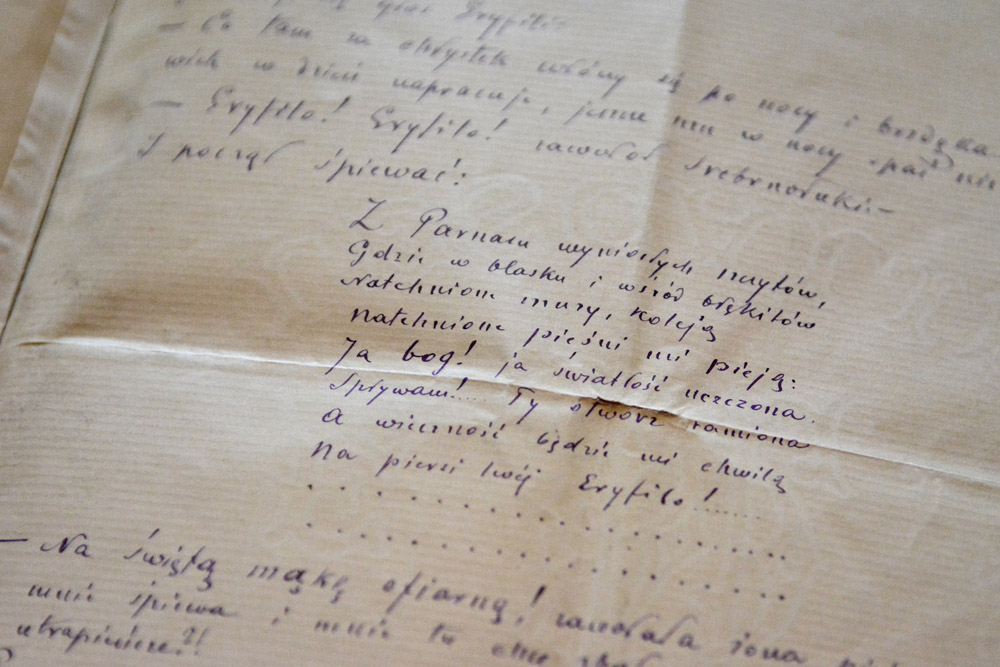 głos Eryfili:
— Co tam za chrystek włóczy się po nocy i brzdąka.
wiek w dzień napracuje, jemu mu w nocy spać nie
— Eryfilo! Eryfilo! zawołał srebrnołuki —
I począł śpiewać:
Z Parnasu wyniosłych szczytów,
Gdzie w blasku i wśród błękitów
Natchnione muzy, koleją
Natchnione pieśni mi pieją:
Ja bog! ja światłość uczczona
Spływam!.... Ty otwórz ramiona
A wieczność będzie mi chwilą
Na piersi twój Eryfilo!.......
. . . . . . . . . . . . . . . . .
. . . . . . . . . . . . . . . . .
— Na świętą mąkę ofiarną! zawołała żona
mnie śpiewa i mnie tu chce
utrapienie?!